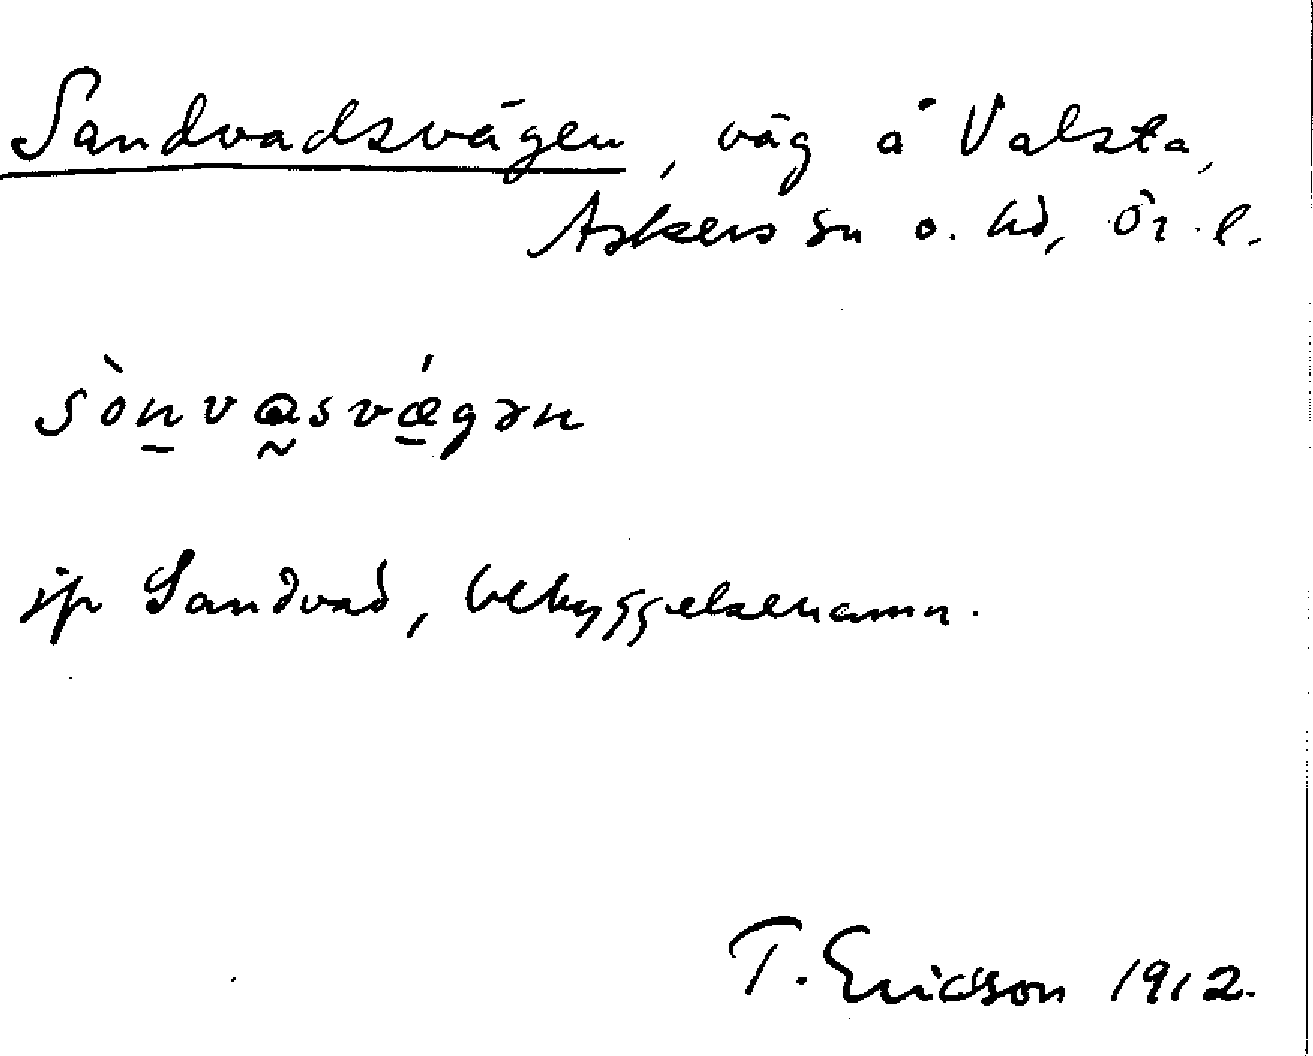 Sandvadsvägen, väg å Valsta,
Askers sn o. hd, Ör. l.
sònvasvǽgən
jfr Sandvad, bebyggelsenamn.
T. Ericsson 1912.